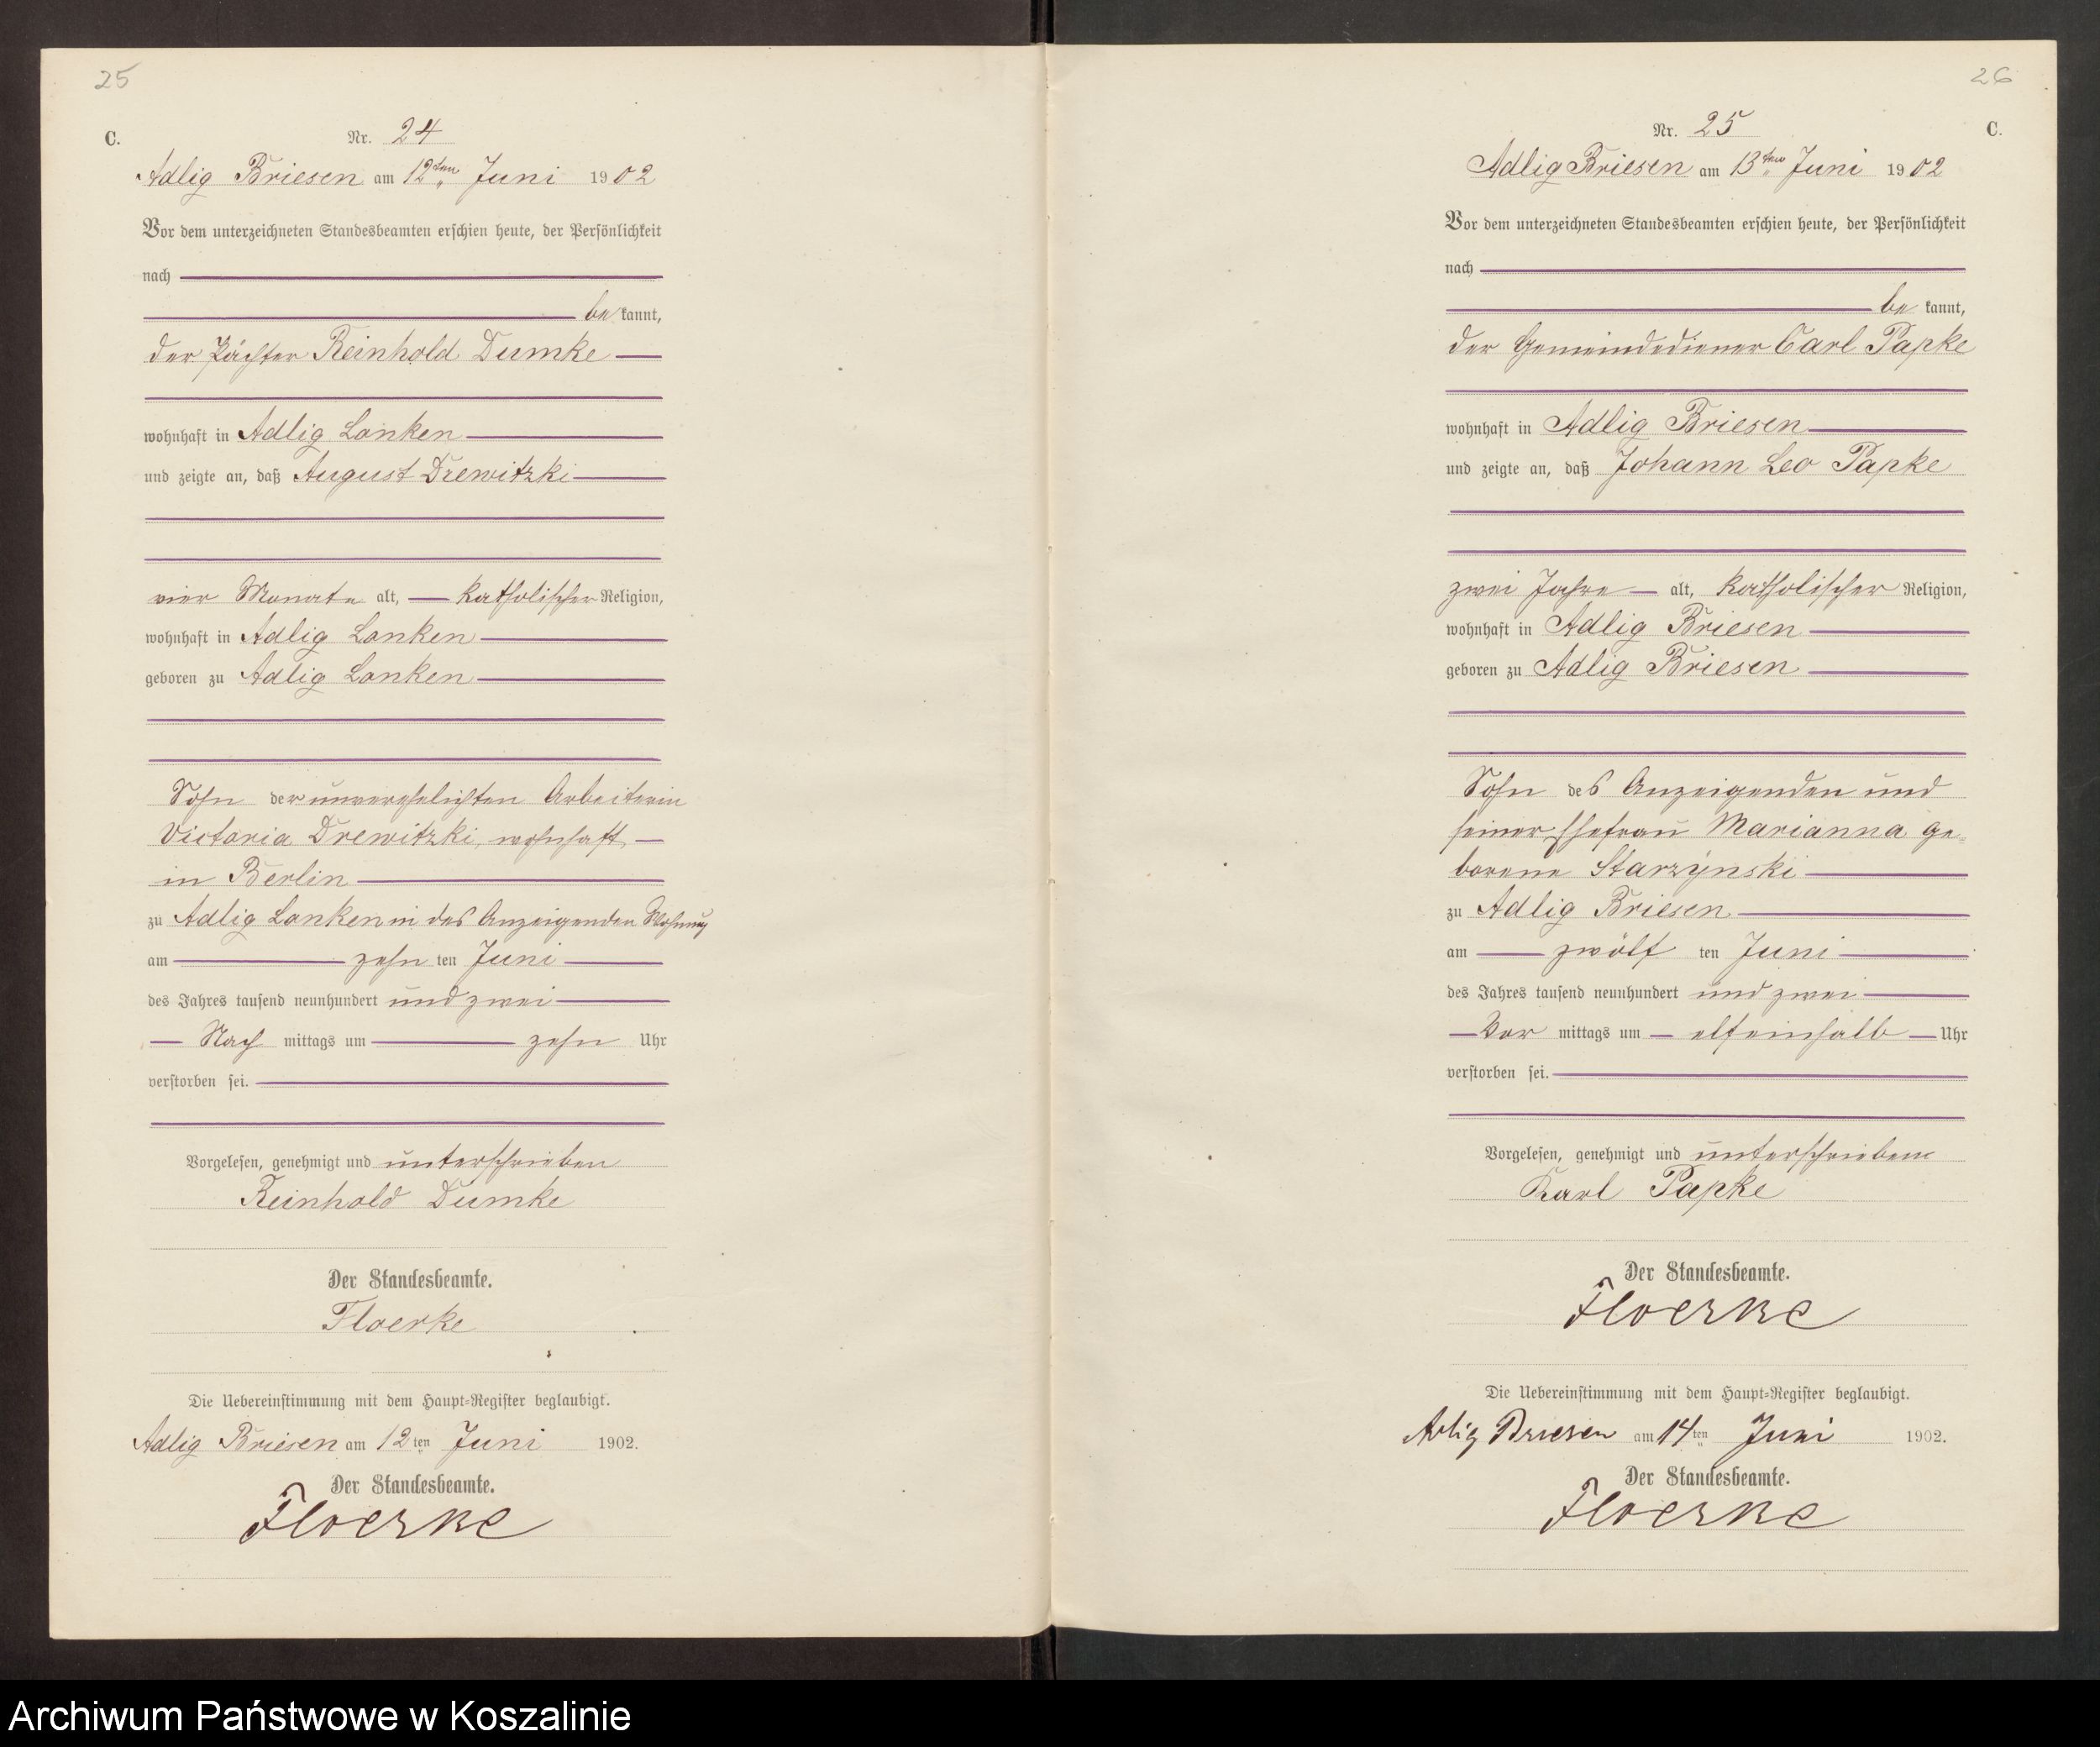 25
C.
Nr. 24
Adlig Briesen am 12ten Juni 1902
Vor dem unterzeichneten Standesbeamten erschien heute, der Persönlichkeit
nach
be kannt,
der Pächter Reinhold Dumke
wohnhaft in Adlig Lanken
und zeigte an, daß August Drewitzki
vier Monate alt, katholischer Religion,
wohnhaft in Adlig Lanken
geboren zu Adlig Lanken
Sohn der unverehelichten Arbeiterin
Victoria Drewitzki, wohnhaft
in Berlin
zu Adlig Lanken in des Anzeigenden Wohnung
am zehn ten Juni
des Jahres tausend neunhundert und zwei
Nach mittags um zehn Uhr
verstorben sei.
Vorgelesen, genehmigt und unterschrieben
Reinhold Dumke
Der Standesbeamte.
Floerke
Die Uebereinstimmung mit dem Haupt-Register beglaubigt.
Adlig Briesen am 12ten Juni 1902.
Der Standesbeamte.
Floerke
26
Nr. 25
C.
Adlig Briesen am 13ten Juni 1902
Vor dem unterzeichneten Standesbeamten erschien heute, der Persönlichkeit
nach
be kannt,
der Gemeindediener Carl Papke
wohnhaft in Adlig Briesen
und zeigte an, daß Johann Leo Papke
zwei Jahre alt, katholischer Religion,
wohnhaft in Adlig Briesen
geboren zu Adlig Briesen
Sohn des Anzeigenden und
seiner Ehefrau Marianna ge-
borene Starzynski
zu Adlig Briesen
am zwölf ten Juni
des Jahres tausend neunhundert und zwei
Vor mittags um elfeinhalb Uhr
verstorben sei.
Vorgelesen, genehmigt und unterschrieben
Karl Papke
Der Standesbeamte.
Floerke
Die Uebereinstimmung mit dem Haupt-Register beglaubigt.
Adlig Briesen am 14ten Juni 1902.
Der Standesbeamte.
Floerke
Archiwum Państwowe w Koszalinie